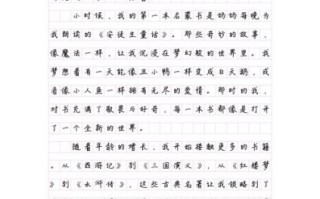 小时候，我的第一本名著书是妈妈每晚为
我朗读的《安徒生童话》。那些奇妙的故事，
像魔法一样，让我沉浸在梦幻般的世界里。我
梦想着有一天能像丑小鸭一样变成白天鹅，或
者像小人鱼一样拥有无尽的爱情。那时的我，
对书充满了敬畏与好奇，每一本书都像是打开
了一个全新的世界。
随着年龄的增长，我开始接触更多的书籍
。从《西游记》到《三国演义》，从《红楼梦
》到《水浒传》，这些古典名著让我领略到了